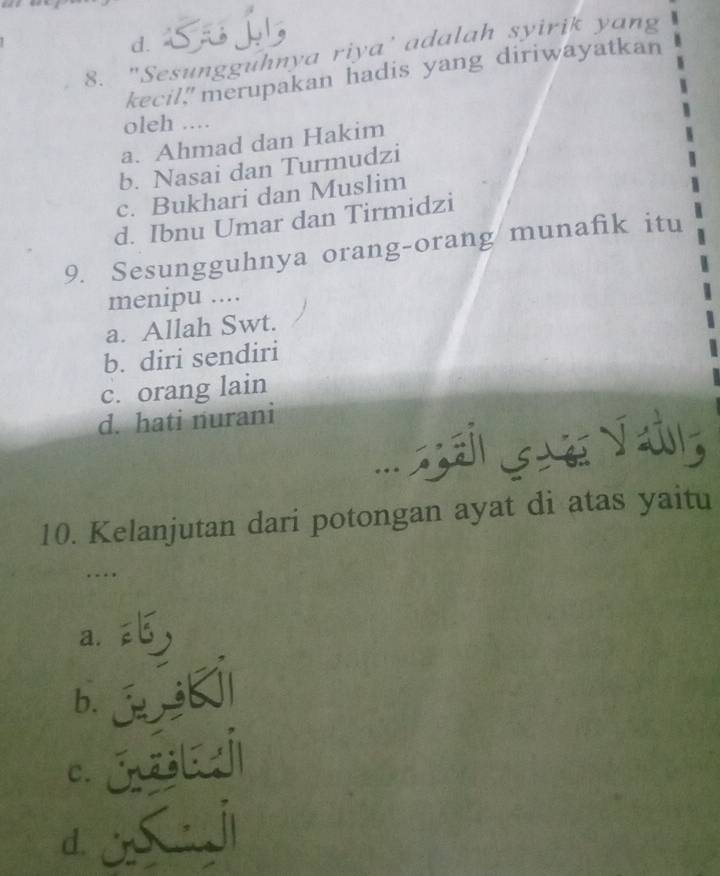 d. وَابِلٌ فَتَرَكَهُ
8. "Sesungguhnya riya' adalah syirik yang
kecil," merupakan hadis yang diriwayatkan
oleh ....
a. Ahmad dan Hakim
b. Nasai dan Turmudzi
c. Bukhari dan Muslim
d. Ibnu Umar dan Tirmidzi
9. Sesungguhnya orang-orang munafik itu
menipu ....
a. Allah Swt.
b. diri sendiri
c. orang lain
d. hati nurani
وَاللّٰهُ لَا يَهْدِى الْقَوْمَ ...
10. Kelanjutan dari potongan ayat di atas yaitu
....
a. رِئَاءَ
b. الْكَافِرِيْنَ
c. الْمُنَافِقِيْنَ
d. الْمِسْكِيْنَ